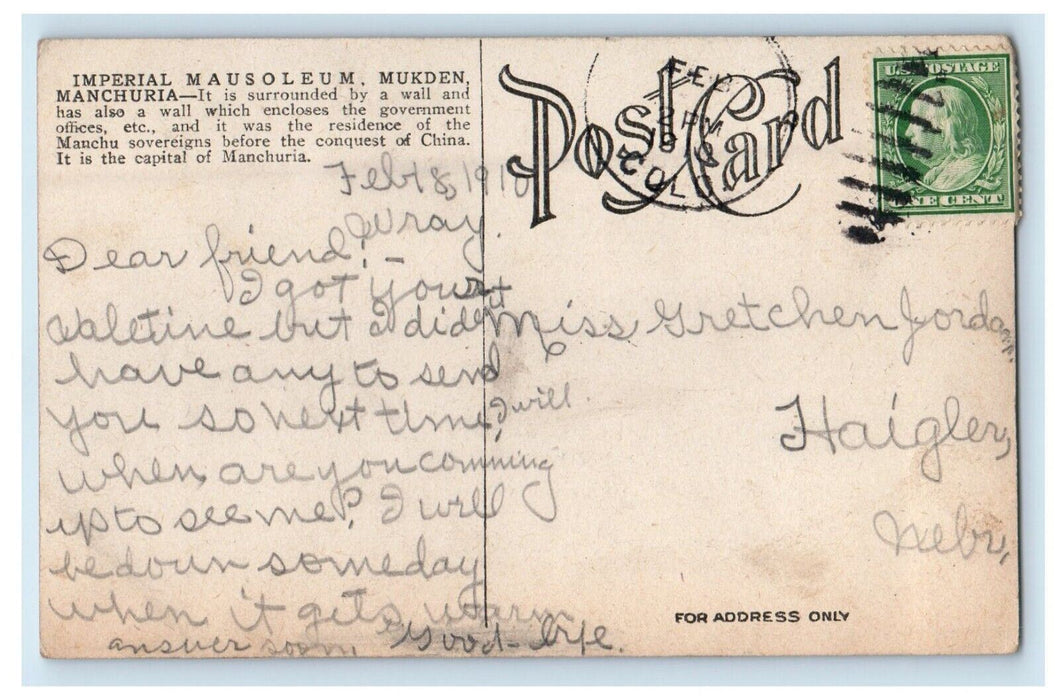 IMPERIAL MAUSOLEUM, MUKDEN,
MANCHURIA—It is surrounded by a wall and
has also a wall which encloses the government
offices, etc., and it was the residence of the
Manchu sovereigns before the conquest of China.
It is the capital of Manchuria.
Post Card
FEB
2 PM
COLO
U.S. POSTAGE
ONE CENT
Feb 18, 1910
Wray.
Dear friend:–
I got your
valetine but I didert
have any to send
you so next time, I will.
when are you comming
up to see me? I will
be doun someday
when it gets warm
answer soon. Good-bye.
Miss Gretchen Jordan,
Haigler,
Nebr,
FOR ADDRESS ONLY